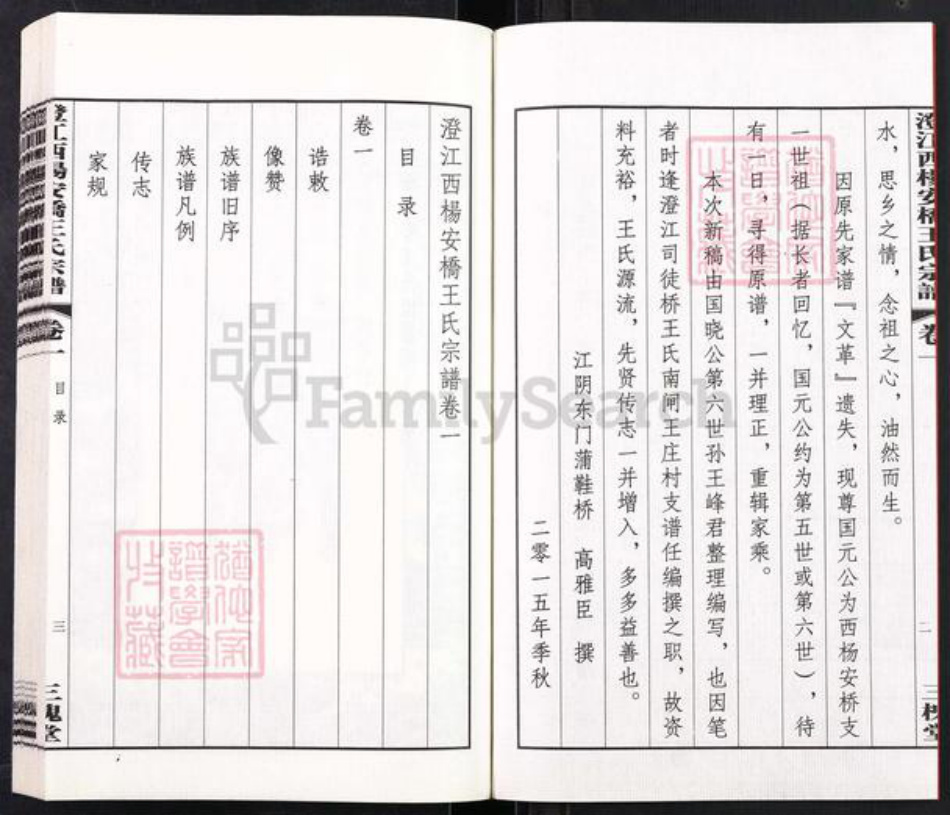 水，思乡之情，念祖之心，油然而生。
因原先家谱『文革』遗失，现尊国元公为西杨安桥支
一世祖（据长者回忆，国元公约为第五世或第六世），待
有一日，寻得原谱，一并理正，重辑家乘。
本次新稿由国晓公第六世孙王峰君整理编写，也因笔
者时逢澄江司徒桥王氏南闸王庄村支谱任编撰之职，故资
料充裕，王氏源流，先贤传志一并增入，多多益善也。
江阴东门蒲鞋桥　高雅臣　撰
二零一五年季秋
澄江西楊安橋王氏宗譜
卷一
二
三槐堂
澄江西楊安橋王氏宗譜卷一
目录
卷一
诰敕
像赞
族谱旧序
族谱凡例
传志
家规
澄江西楊安橋王氏宗譜
卷一
目录
三
三槐堂
FamilySearch